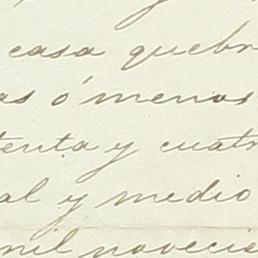 y
casa quebr
as ó menos
tenta y cuatr
al y medio
mil novecie